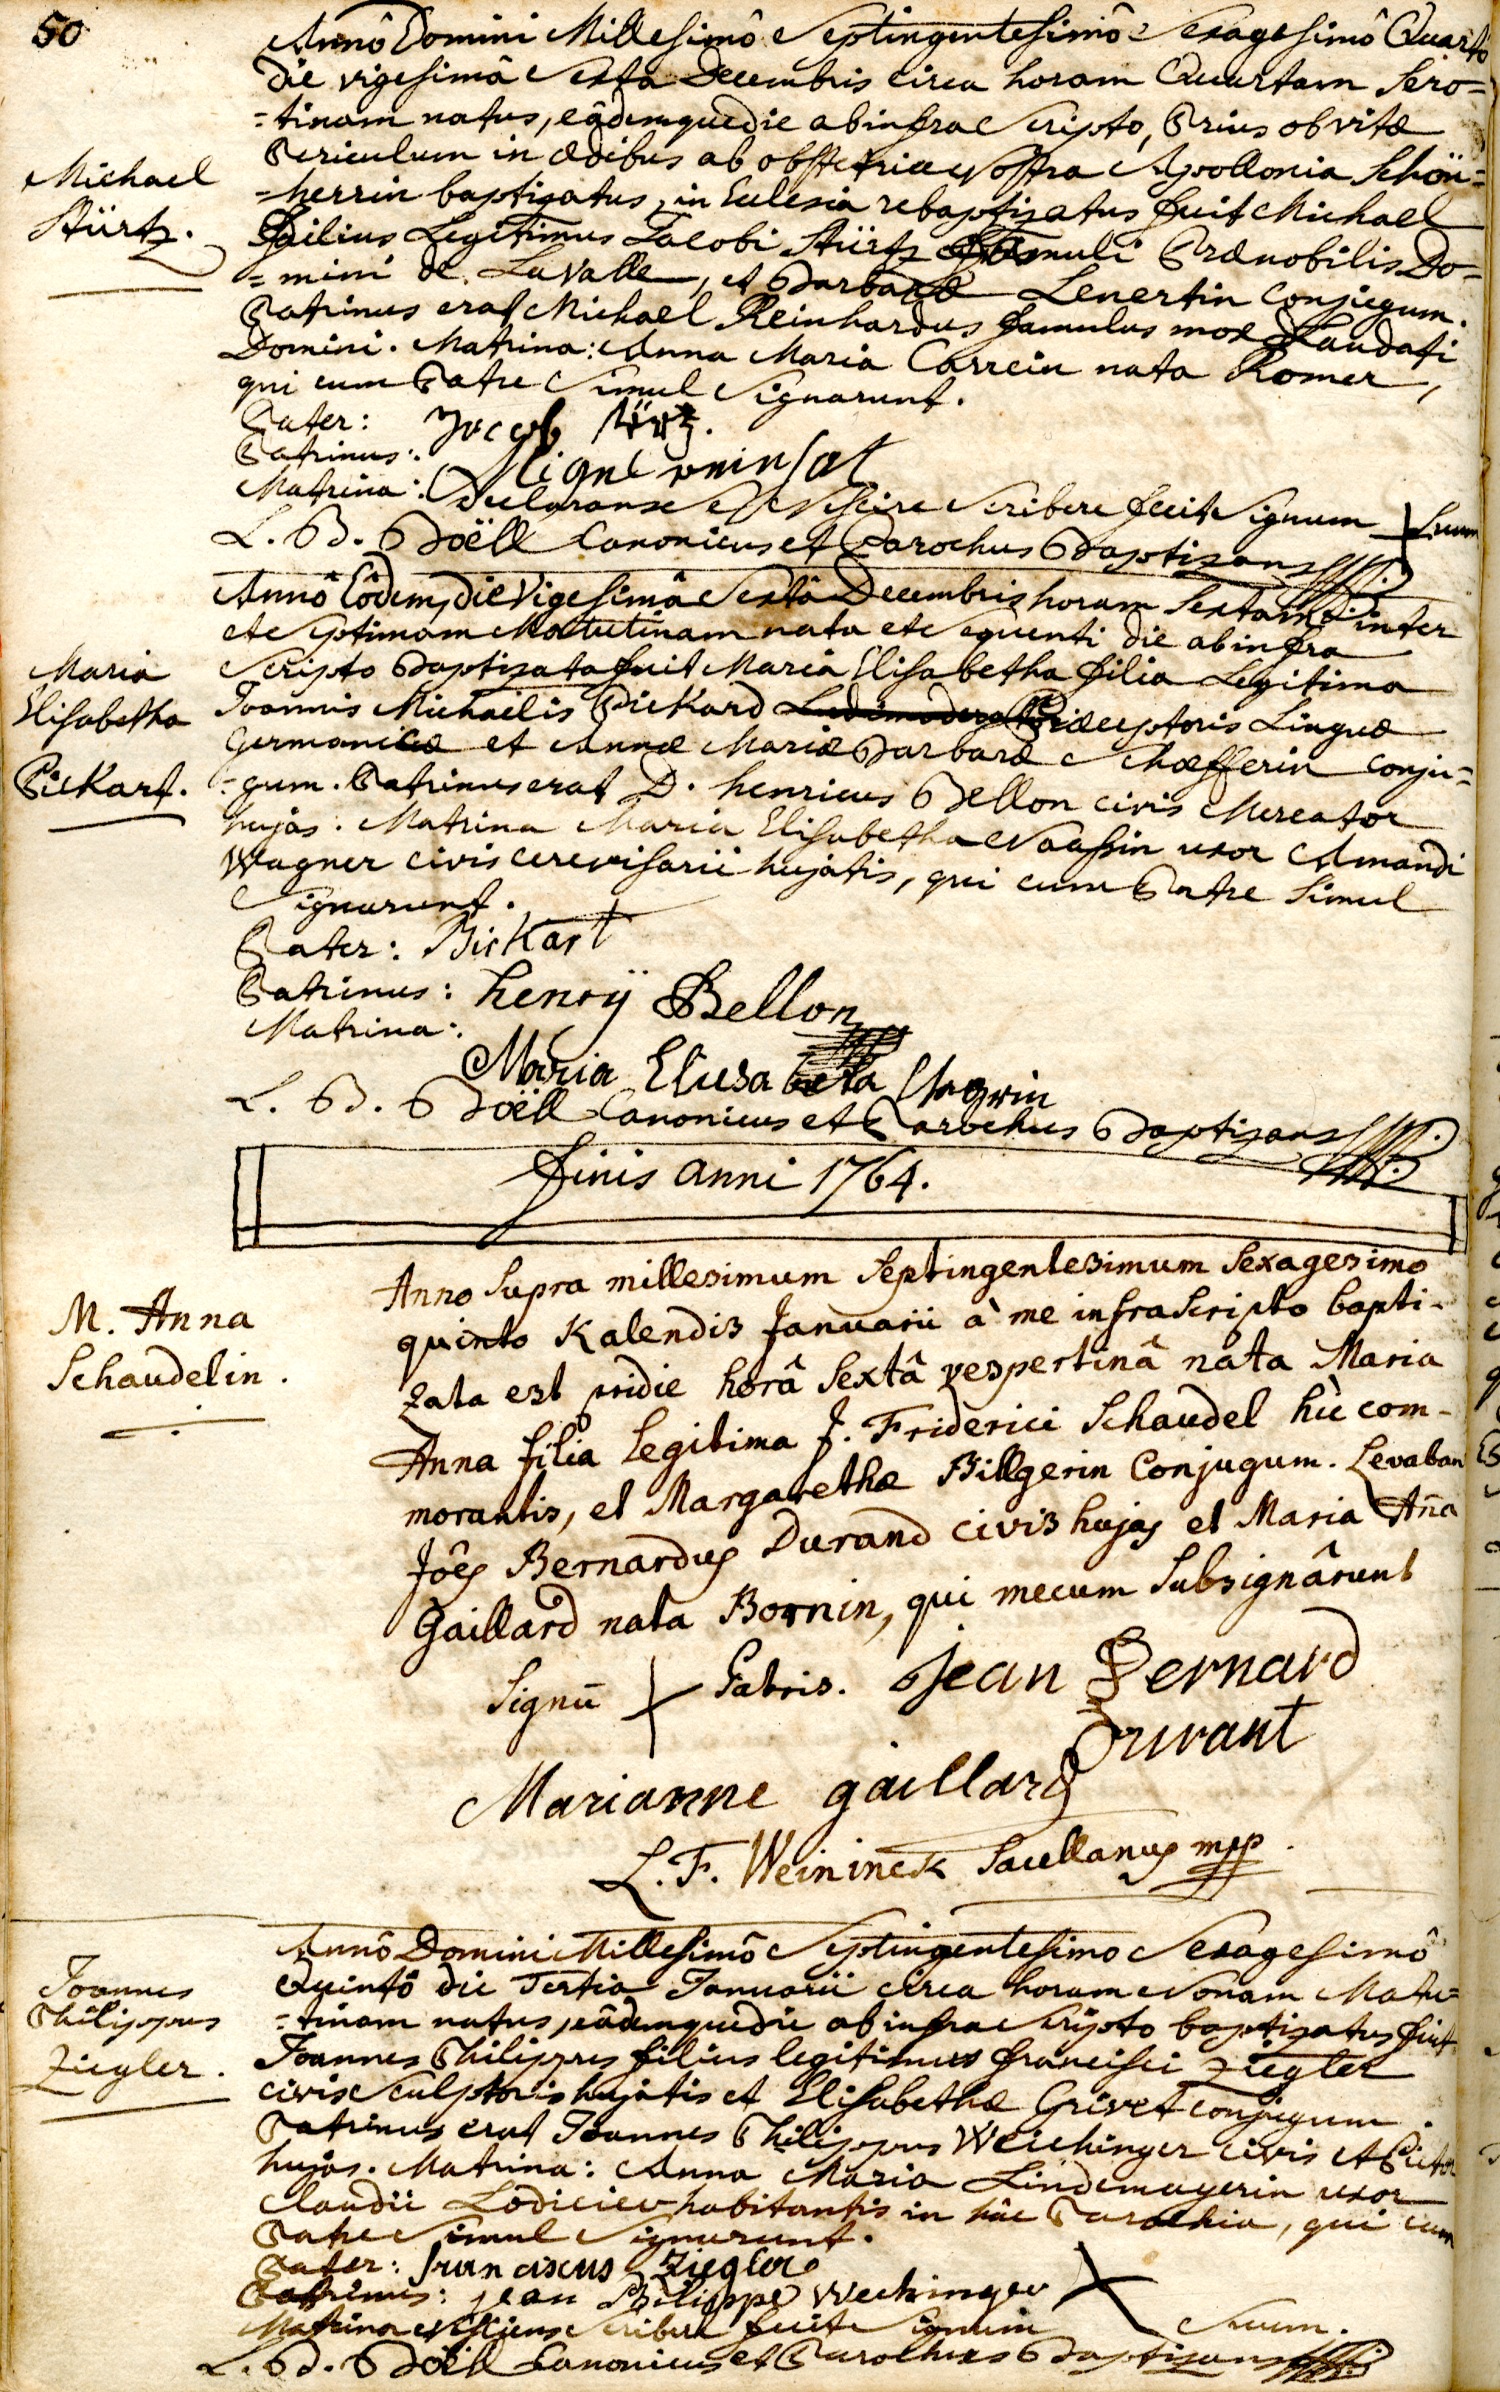 50
Annô Domini Millesimô Septingentesimô Sexagesimô Quarto
die vigesimâ Sexta Decembris circa horam Quartam Sero=
=tinam natus, eâdemque die ab infra Scripto, Prius ob vitæ
Periculum in ædibus ab obstetrice Nostra Apollonia Schön=
=herrin baptizatus, in Eclesia rebaptizatus fuit Michael
Michael
Stürtz.
Filius Legitimus Jacobi Stürtz famuli Prænobilis Do=
=mini de LaValle, et Barbaræ Lenertin Conjugum.
Patrinus erat Michael Reinhardus famulus mox Laudati
Domini. Matrina: Anna Maria Carrein nata Romer,
qui cum Patre Simul Signarunt.
Pater: Jocob Stürtz.
Patrinus:
Matrina: Declarans se Nescire Scribere fecit Signum + Suum
L. B. Böell Canonicus et Parochus Baptizans
Annô Eôdem, die Vigesimâ Sextâ Decembris horam Sextam inter
et Septimam Matutinam nata et Sequenti die ab infra
Scripto Baptizata fuit Maria Elisabetha filia Legitima
Maria
Elisabetha
Pickart.
Joannis Michaelis Pickard Præceptoris Linguæ
Germanicæ et Annæ Mariæ Barbaræ Schæfferin conju=
=gum. Patrinus erat D. henricus Bellon civis Mercator
hujas. Matrina Maria Elisabetha Naassin uxor Amandi
Wagner civis cerevisarii hujatis, qui cum Patre Simul
Signarunt.
Pater: Bickart
Patrinus: henrÿ Bellon
Matrina:
Maria Elisabeta
L. B. Böell Canonicus et Parochus Baptizans
finis anni 1764.
Anno Supra millesimum Septingentesimum Sexagesimo
quinto Kalendis Januarii à me infraScripto bapti-
zata est pridie horâ Sextâ vespertinâ nata Maria
M. Anna
Schaudelin.
Anna filia legitima J. Friderici Schaudel hìc com-
morantis, et Margarethæ Billgerin Conjugum. Levaban
Joês Bernardus Durand civis hujas et Maria Aña
Gaillard nata Bornin, qui mecum Subsignârunt
Signū + Patris. Jean Bernard
Durant
Marianne gaillard
L. F. Weininck Sacellanus mpp.
Annô Domini Millesimô Septingentesimo Sexagesimô
Quintô die Tertia Januarii circa horam Nonam Matu=
=tinam natus, eâdemque die ab infra Scripto baptizatus fuit
Joannes
Philippus
Ziegler.
Joannes Philippus filius legitimus francisci Ziegler
civis Sculptoris hujatis et Elisabethæ Grivet conjugum.
Patrinus erat Joannes Philippus Weichinger civis et Pictor
hujas. Matrina: Anna Maria Lindemayerin uxor
Claudii habitantis in hâc Parochia, qui cum
Patre Simul Signarunt.
Pater: franciscus Ziegler
Patrinus: jean Philippe Wechinger
Matrina Nesciens Scribere fecit Signum + Suum.
L. B. Böell Canonicus et Parochus Baptizans